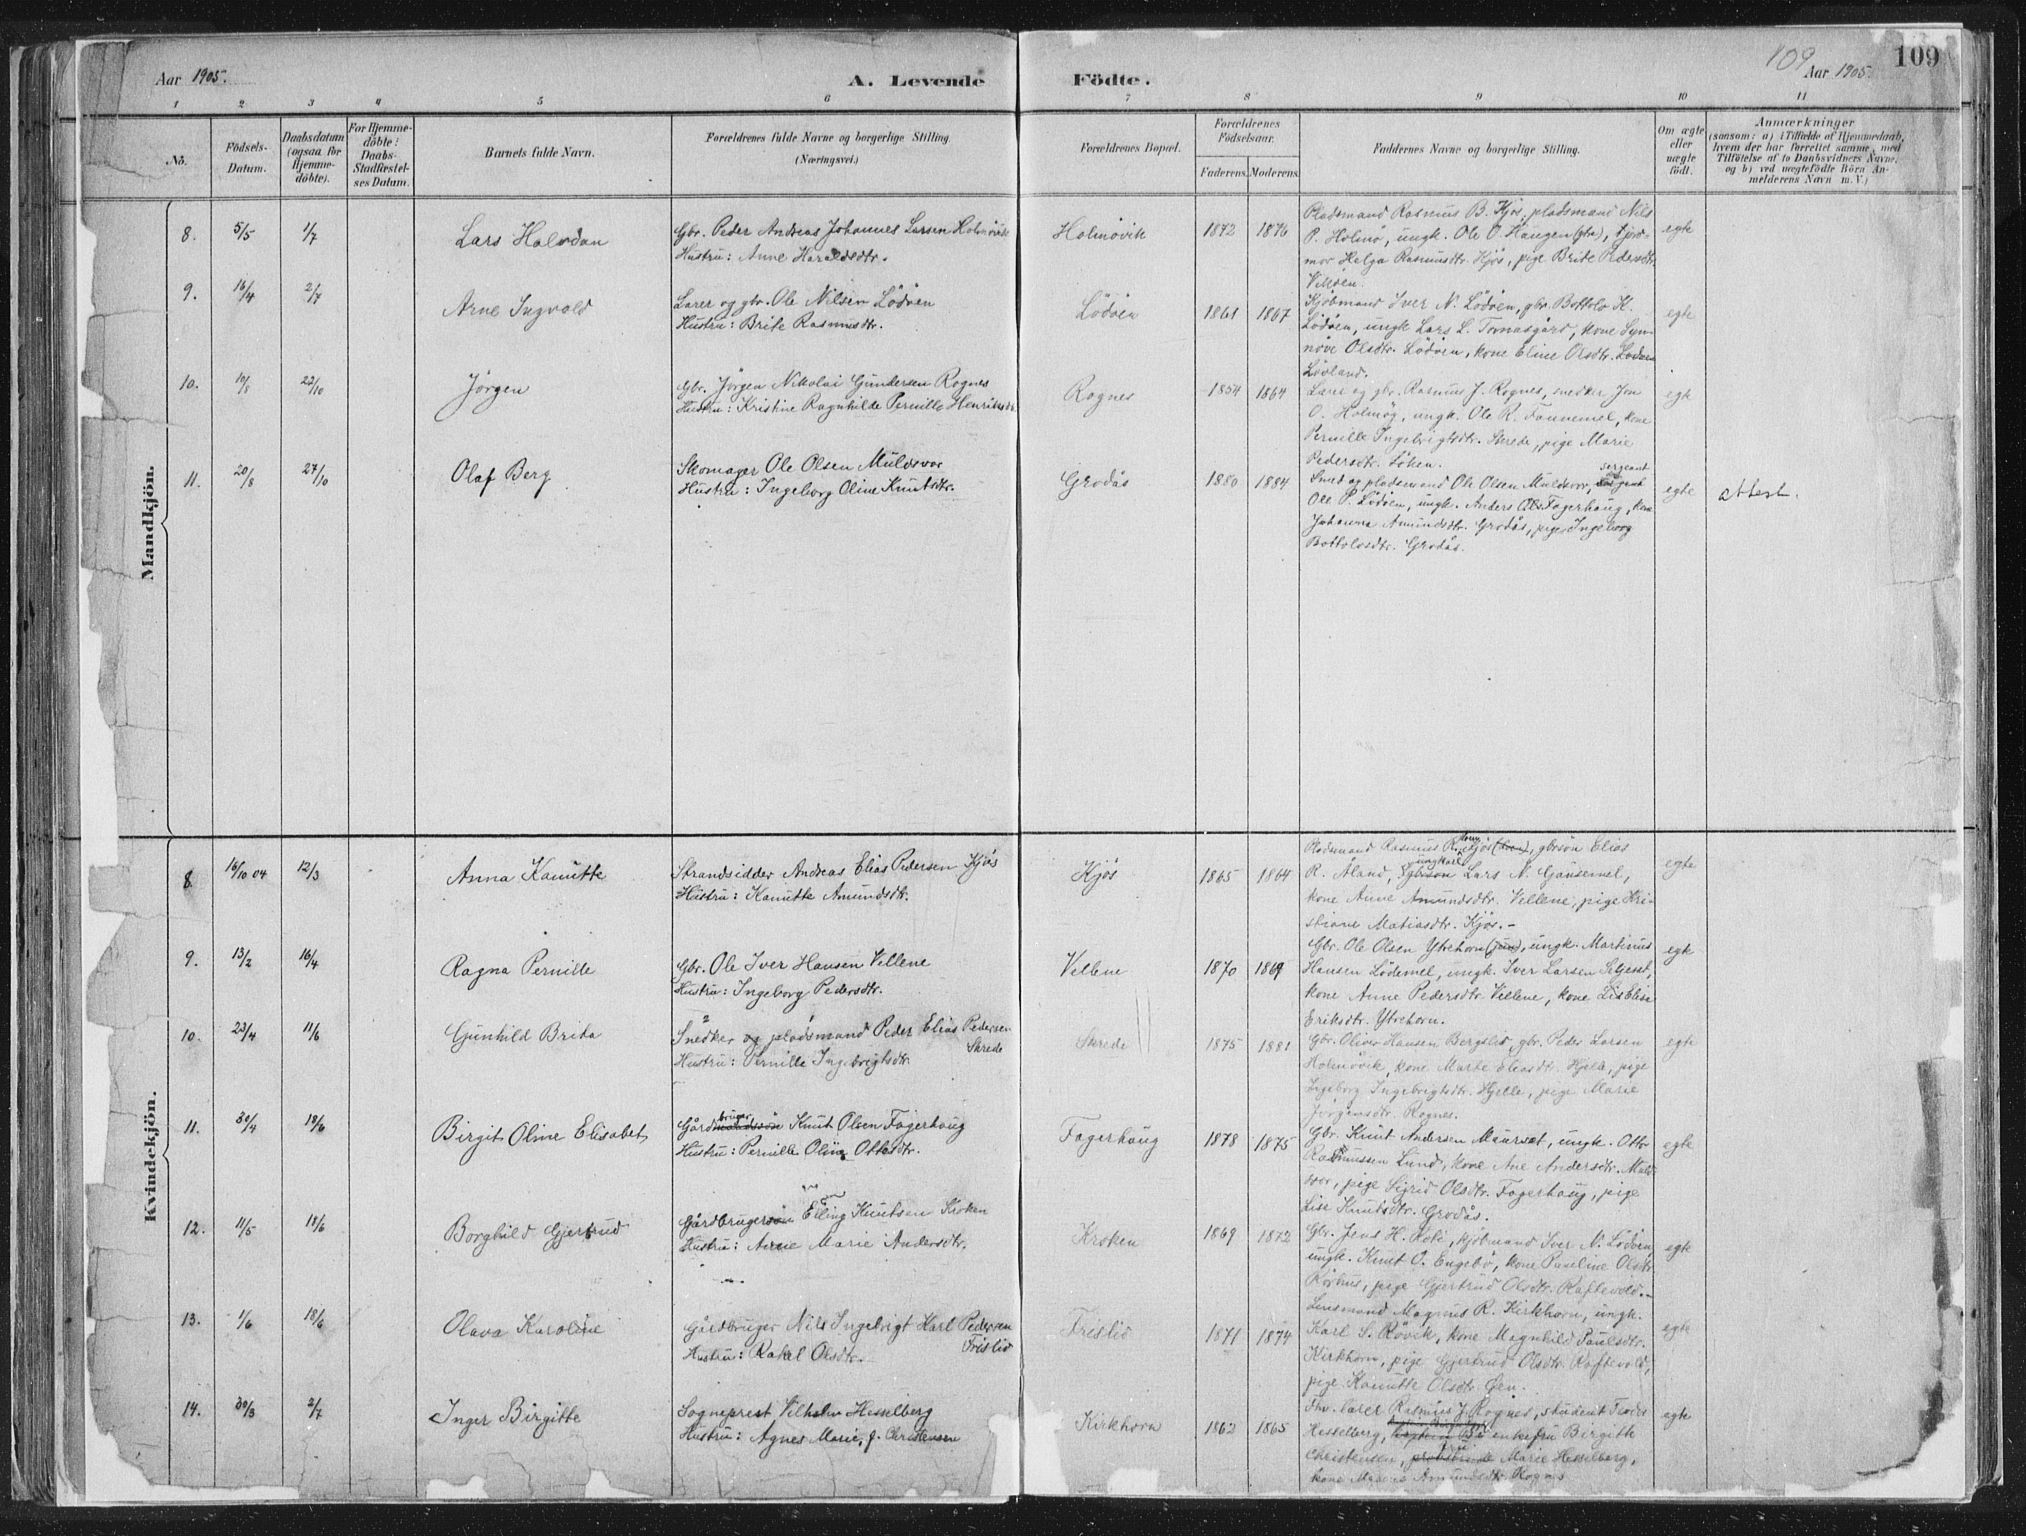 Aar 1905.
A. Levende Födte.
109 Aar 1905. 109
1 2 3 4 5 6 7 8 9 10 11
No.
Födsels-Datum.
Daabsdatum (ogsaa for Hjemme-döbte).
For Hjemme-döbte: Daabs-Stadfæstel-ses Datum.
Barnets fulde Navn.
Forældrenes fulde Navne og borgerlige Stilling.
(Næringsvei.)
Forældrenes Bopæl.
Forældrenes Födselsaar.
Faderens. Moderens.
Faddernes Navne og borgerlige Stilling.
Om ægte eller uægte födt.
Anmærkninger
(saasom: a) i Tilfælde af Hjemmedaab, hvem der har forrettet samme, med Tilföielse af to Daabsvidners Navne, og b) ved uægtefödte Börn An-melderens Navn m. V.)
Mandkjön.
8. 5/5 1/7 Lars Halvdan
Gbr. Peder Andreas Johannes Larsen Holmövik
Hustru: Anne Haraldsdtr.
Holmövik 1872 1876
Pladsmand Rasmus B. Kjös, pladsmand Nils
P. Holmö, ungk. Ole O. Haugen (ytre), Jord-
mor Helga Rasmusdtr. Kjös, pige Brite Pedersdtr.
egte
9. 16/4 2/7 Arne Ingvald
Lærer og gbr. Ole Nilsen Lödöen
Hustru: Brite Rasmusdtr.
Lödöen 1861 1867
Kjöbmand Iver N. Lödöen, gbr. Bottolv K.
Lödöen, ungk Lars L. Tomasgård, kone Syn-
növe Olsdtr. Lödöen, kone Eline Olsdtr. Lödöen
Lövland.
egte
10. 10/8 22/10 Jörgen
Gbr. Jörgen Nikolai Gundersen Rognes
Hustru: Kristine Ragnhilde Pernille Henriksdtr.
Rognes 1854 1864
Lærer og gbr. Rasmus J. Rognes, snedker Jon
O. Holmög, ungk. Ole R. Tonnemel, kone
Pernille Ingebrigtsdtr. Skrede, pige Marie
Pedersdtr. Löken.
egte
11. 20/8 27/10 Olaf Berg
Skomager Ole Olsen Muldsvor
Hustru: Ingeborg Oline Knutsdtr.
Grodås 1880 1884
Smed og pladsmand Ole Olsen Muldsvor, sergeant
Ole P. Lödöen, ungk. Anders Ols. Fagerhaug, kone
Johanna Amundsdtr. Grodås, pige Ingeborg
Bottolvsdtr. Grodås.
egte attest.
Kvindekjön.
8. 16/10 04 12/3 Anna Kamitte
Strandsidder Andreas Elias Pedersen Kjös
Hustru: Kamitte Amundsdtr.
Kjös 1865 1864
Pladsmand Rasmus R. Kjös, gbrsön Elias
R. Åland, ungkarl Lars N. Gausemel,
kone Anne Amundsdtr. Vellene, pige Kri-
stiane Matiasdtr. Kjös.
egte
9. 13/2 16/4 Ragna Pernille
Gbr. Ole Iver Hansen Vellene
Hustru: Ingeborg Pedersdtr.
Vellene 1870 1869
Gbr. Ole Olsen Ytrehorn, ungk. Martinus
Hansen Lödemel, ungk. Iver Larsen Seljeset,
kone Anne Pedersdtr. Vellene, kone Lis Elise
Eriksdtr. Ytrehorn.
egte
10. 23/4 11/6 Gunhild Brita
Snedker og pladsmand Peder Elias Pedersen Skrede
Hustru: Pernille Ingebrigtsdtr.
Skrede 1875 1881
Gbr. Oliver Hansen Bergslid, gbr. Peder Larsen
Holmövik, kone Marte Eliasdtr. Hjelle, pige
Ingeborg Ingebrigtsdtr. Hjelle, pige Marie
Jörgensdtr. Rognes.
egte
11. 30/4 18/6 Birgit Oline Elisabet
Gårdbruger Knut Olsen Fagerhaug
Hustru: Pernille Oline Ottosdtr.
Fagerhaug 1878 1875
Gbr. Knut Andersen Maurset, ungk. Otto
Rasmussen Lund, kone Ane Andersdtr. Mulds-
vor, pige Sigrid Olsdtr. Fagerhaug, pige
Lise Knutsdtr. Grodås.
egte
12. 11/5 18/6 Borghild Gjertrud
Gårdbruger Elling Knutsen Kroken
Hustru: Anne Marie Andersdtr.
Kroken 1869 1872
Gbr. Jens H. Koke, kjöbmand Iver N. Lödöen,
ungk. Knut O. Engebö, kone Pauline Olsdtr.
Körhus, pige Gjertrud Olsdtr. Raftevold.
egte
13. 1/6 18/6 Olava Karoline
Gårdbruger Nils Ingebrigt Karl Pedersen Frislid
Hustru: Rakel Olsdtr.
Frislid 1871 1874
Lensmand Magnus R. Kirkhorn, ungk.
Karl S. Rövik, kone Magnhild Paulsdtr.
Kirkhorn, pige Gjertrud Olsdtr. Raftevold,
pige Kamitte Olsdtr. Öen.
egte
14. 30/3 2/7 Inger Birgitte
Sogneprest Vilhelm Hesselberg
Hustru: Agnes Marie, f. Christensen
Kirkhorn 1862 1865
Fhv. lærer Rasmus J. Rognes, student Teodor
Hesselberg, enkefru Birgitte
Christensen, fru Marie Hesselberg,
kone Amundsdtr. Rognes
egte